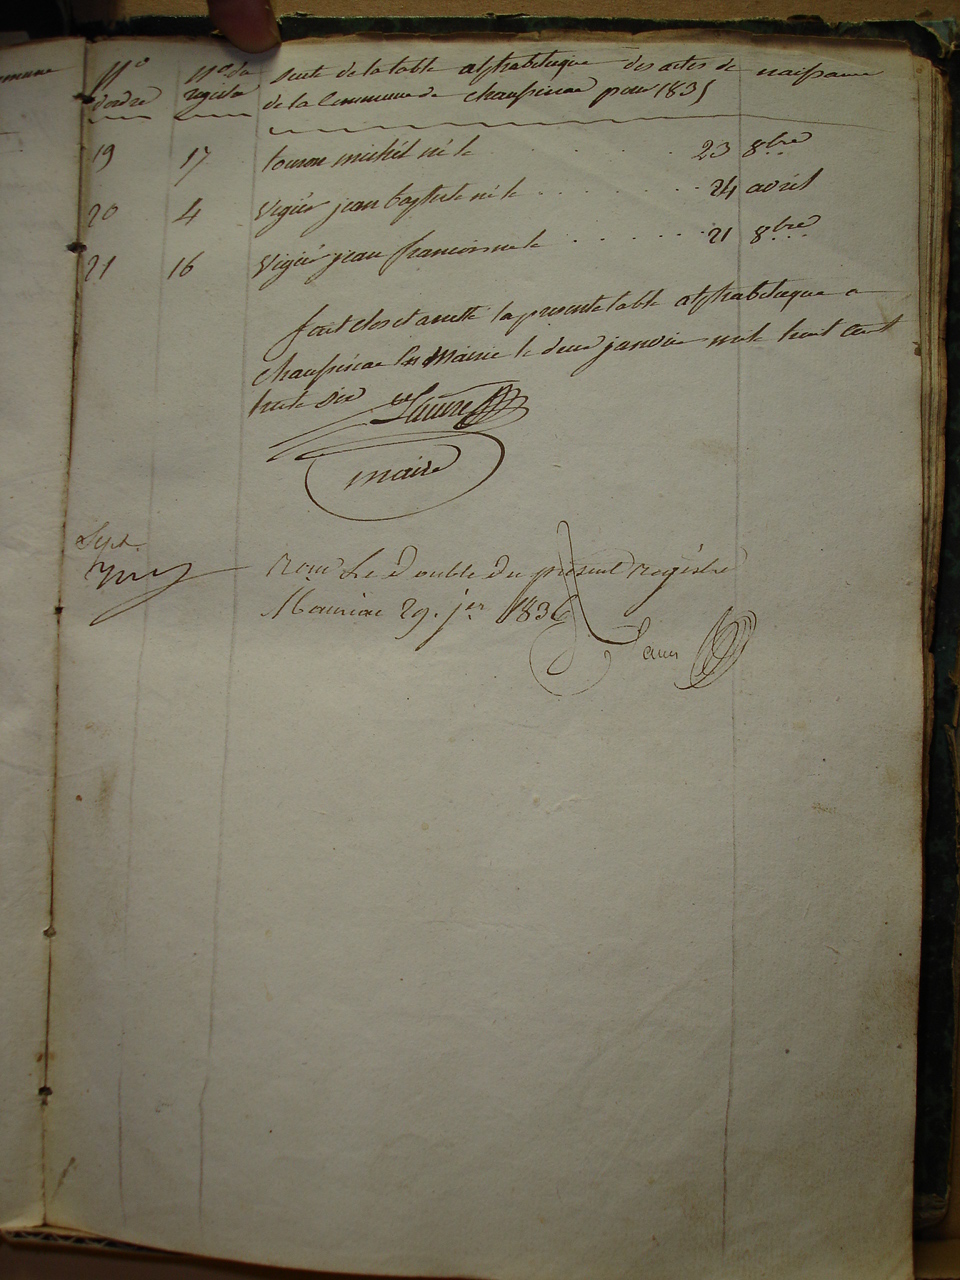 mmune
N.o N.o du Suite de la table alphabetique des actes de naissance
d'ordre registre de la Commune de chaussenac pour 1835
19 17 touron michel né le . . . . . . 23 8bre
20 4 Vigier jean baptiste né le . . . . . . 24 avril
21 16 Vigier jean francois né le . . . . . . 21 8bre
fait clos et arretté la presente table alphabetique a
chaussenac En Mairie le deux janvier mil huit cent
trente six
maire
Le Double du présent régistre
Mauriac 29. jer 1836